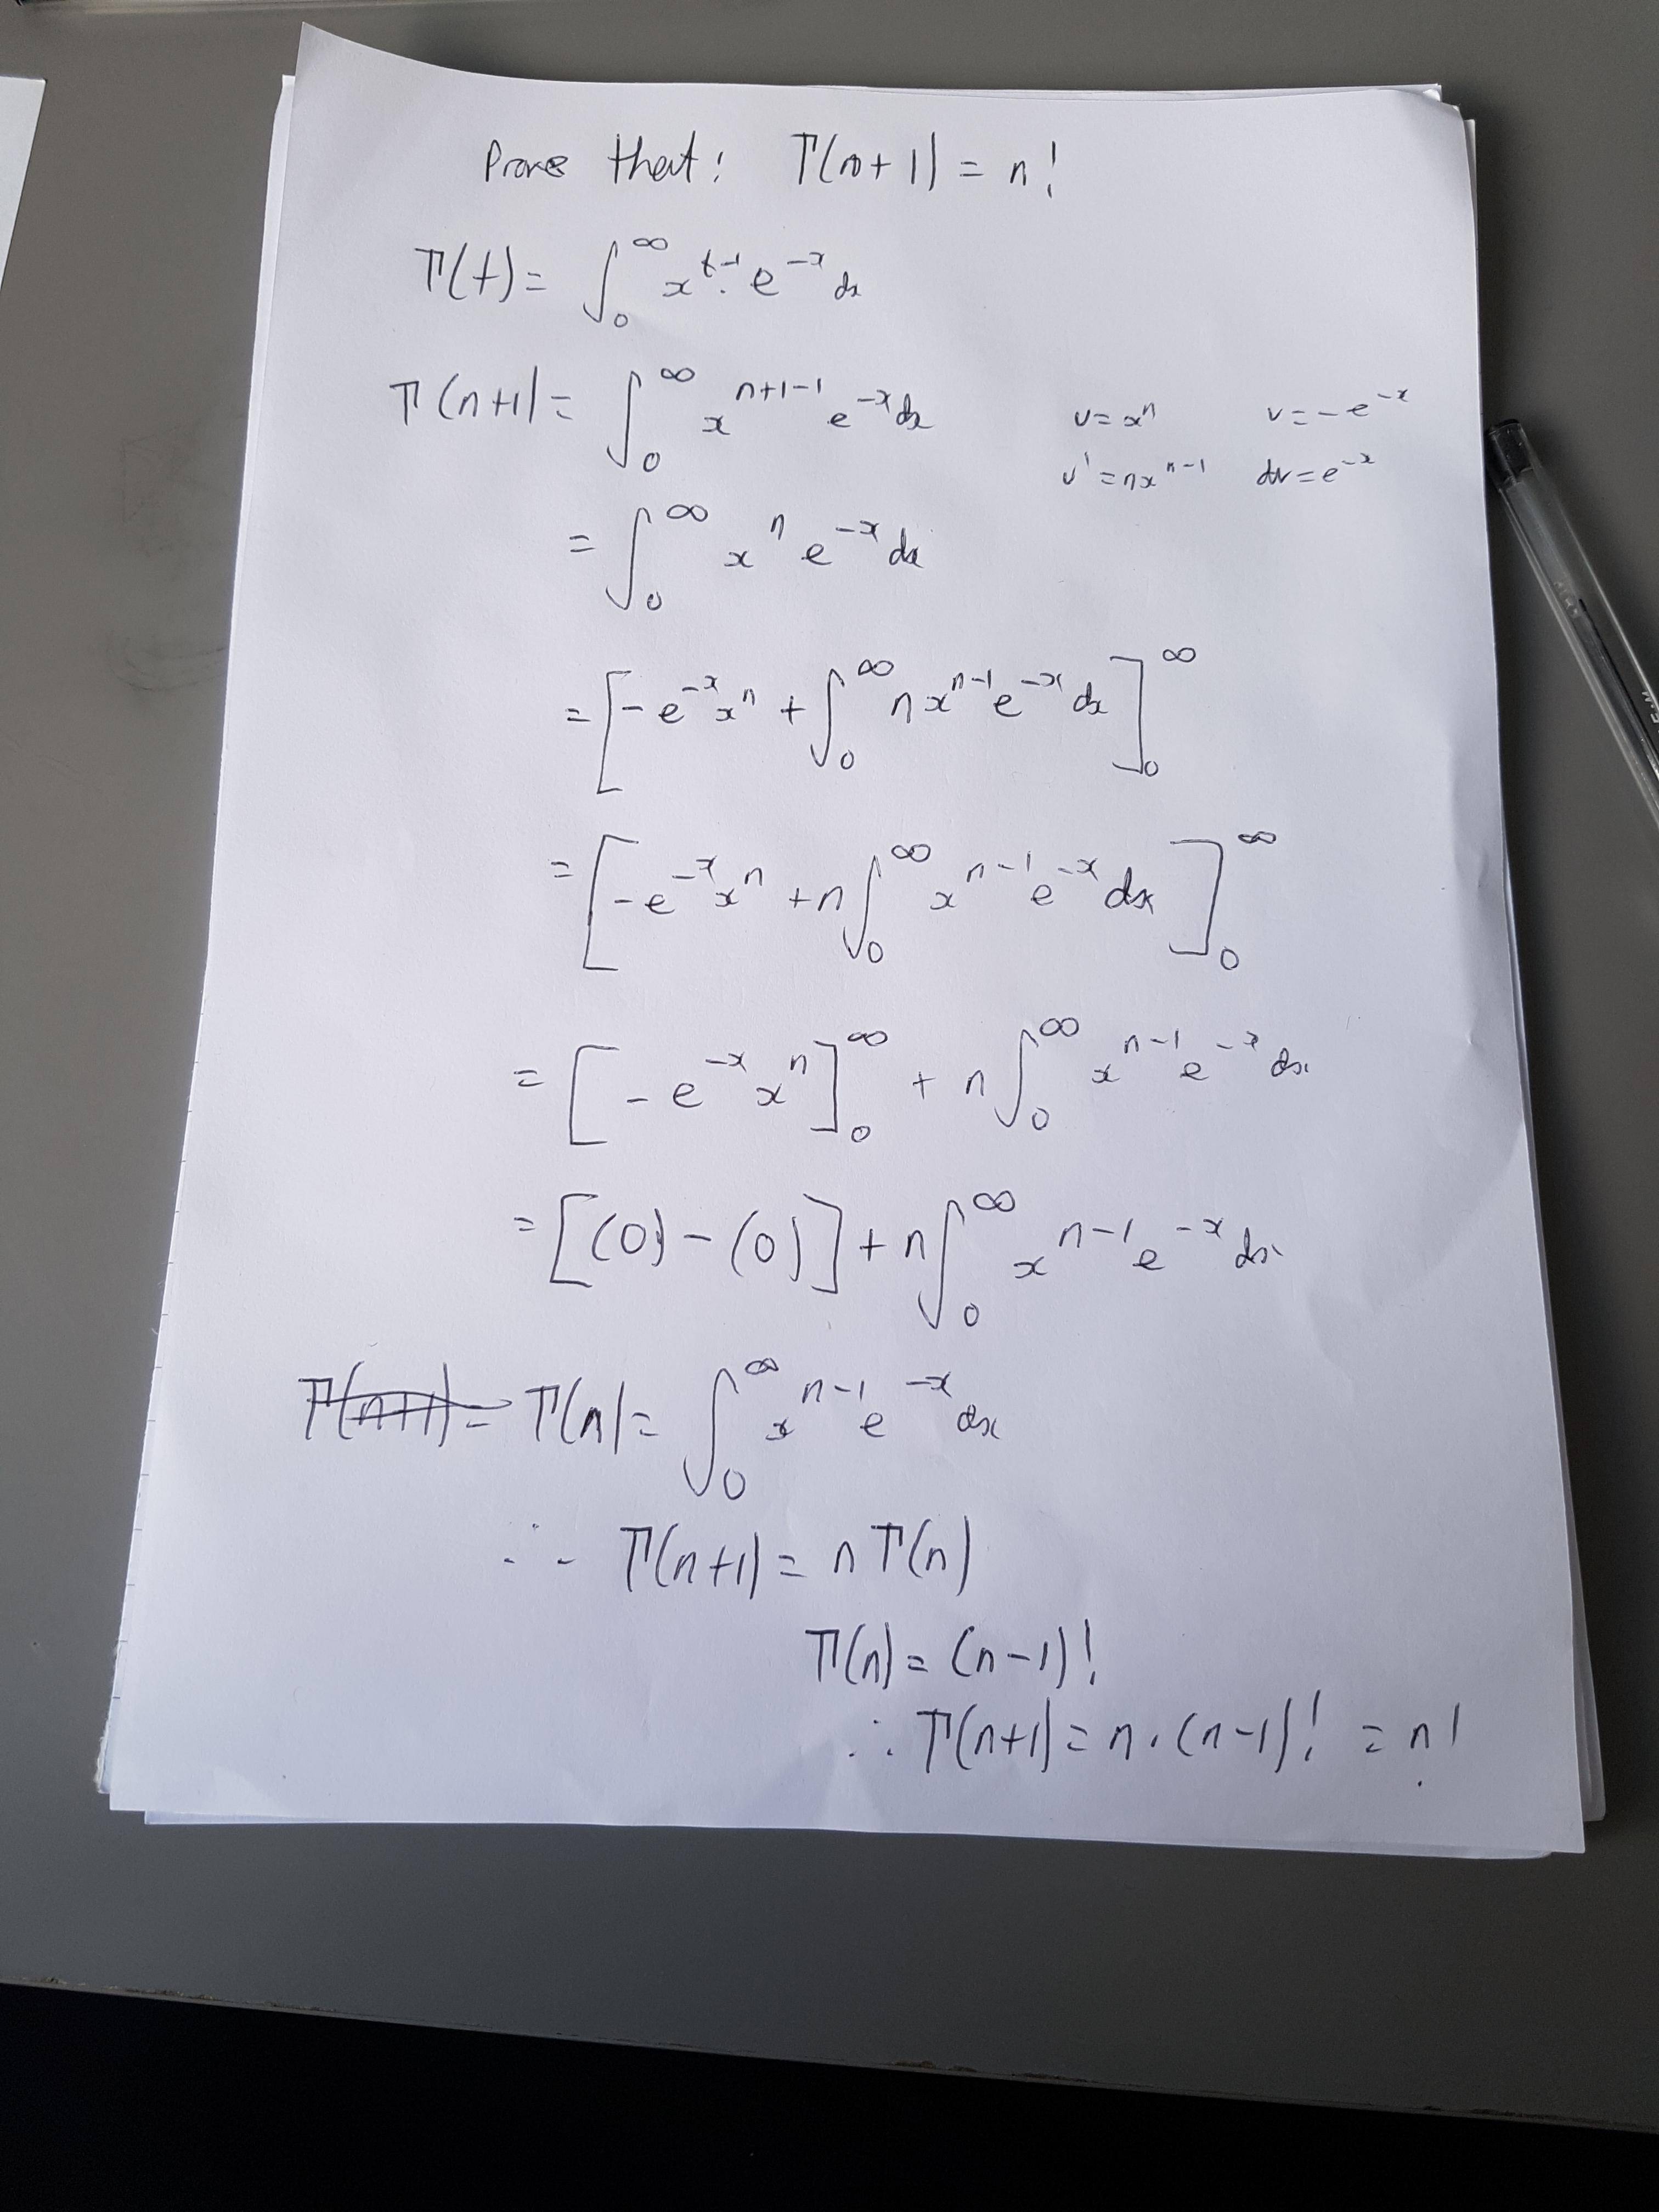 Prove that: Γ(n+1) = n!
Γ(t) = ∫₀^∞ x^(t-1) · e^(-x) dx
Γ(n+1) = ∫₀^∞ x^(n+1-1) e^(-x) dx
u = x^n v = -e^(-x)
u' = nx^(n-1) dv = e^(-x)
= ∫₀^∞ x^n e^(-x) dx
= [-e^(-x) x^n + ∫₀^∞ n x^(n-1) e^(-x) dx]₀^∞
= [-e^(-x) x^n + n ∫₀^∞ x^(n-1) e^(-x) dx]₀^∞
= [-e^(-x) x^n]₀^∞ + n ∫₀^∞ x^(n-1) e^(-x) dx
= [(0) - (0)] + n ∫₀^∞ x^(n-1) e^(-x) dx
Γ(n+1) = Γ(n) = ∫₀^∞ x^(n-1) e^(-x) dx
∴ Γ(n+1) = n Γ(n)
Γ(n) = (n-1)!
∴ Γ(n+1) = n · (n-1)! = n!